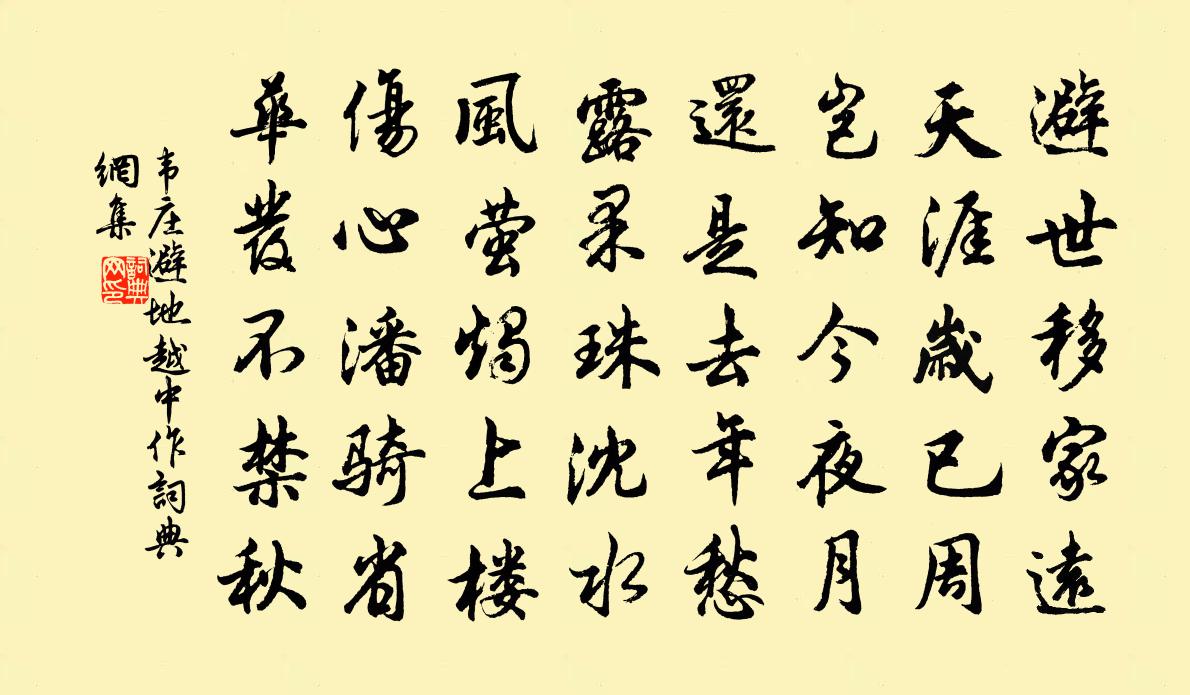 避世移家遠
天涯歲已周
岂知今夜月
還是去年愁
露果珠沈水
風萤燭上楼
傷心潘騎省
華發不禁秋
韦庄避地越中作詞典
網集
詞典网印